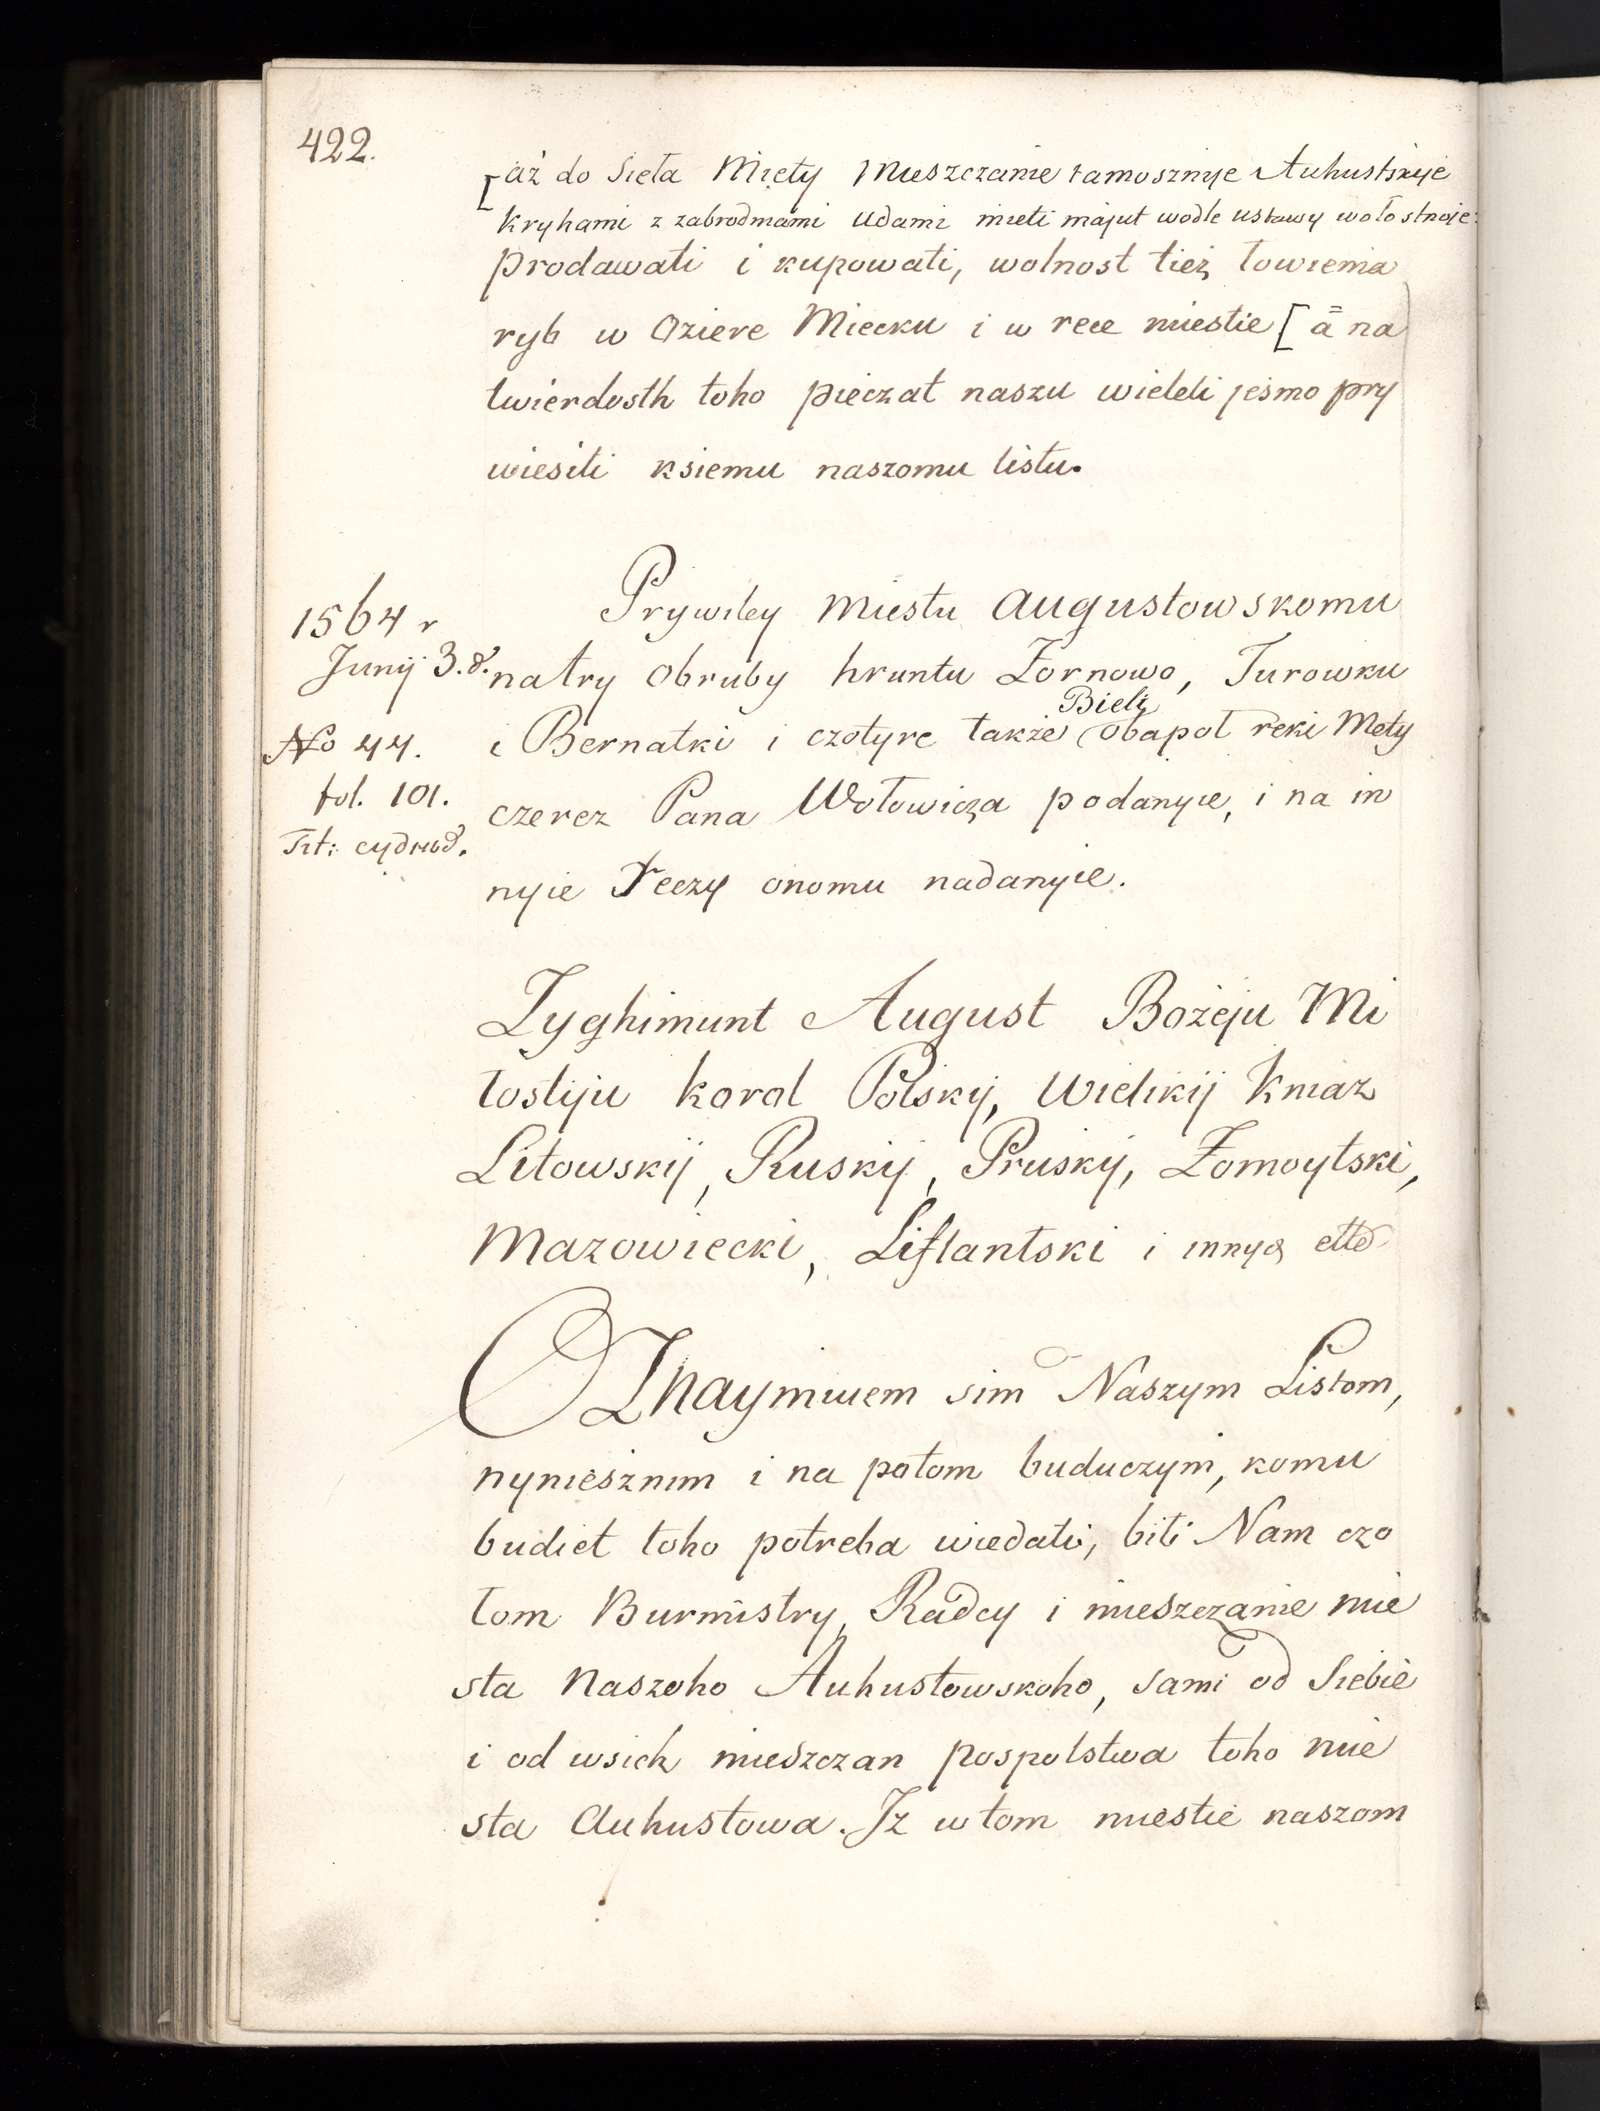 422.
[aż do Sieła Miety Mieszczanie tamosznyje Auhustskije
kryhami z zabrodniami udami mieti majut wodle ustawy wołostnoje:
prodawati i kupowati, wolnost tież łowienia
ryb w Oziere Miecku i w rece miestie [ā na
twierdosth toho pieczat naszu wieleli jesmo pry
wiesiti ksiemu naszomu listu.
1564 r
Junij 3. d.
No 44.
fol. 101.
Prywiley Miestu Augustowskomu
na try obruby hruntu Żornowo, Turowku
Biely
i Bernatki i czotyre także obapol reki Mety
czerez Pana Wołowicza podanyie, i na in
nyie reczy onomu nadanyie.
Zyghimunt August Bożeju Mi
łostiju korol Polskij, Wielikij Kniaz
Litowskij, Ruskij, Pruskij, Żomoytski,
Mazowiecki, Liflantski i innych
Oznaymuiem sim Naszym Listom,
nyniesznim i na potom buduczym, komu
budiet toho potreba wiedati, bili Nam czo
łom Burmistry, Radcy i mieszczanie mie
sta Naszoho Auhustowskoho, sami od Siebie
i od wsich mieszczan pospolstwa toho mie
sta Auhustowa. Iz w tom miestie naszom